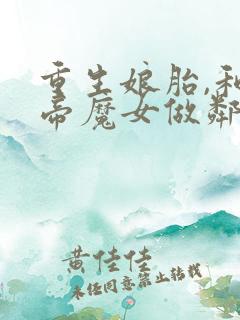 重生娘胎,和
帝魔女做鄰
黄佳佳
未经同意禁止转载